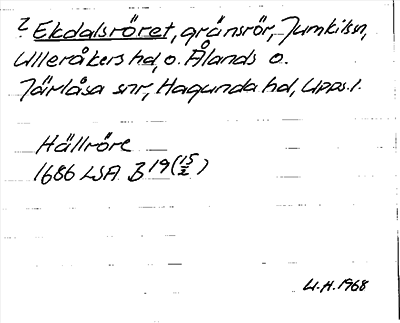 ? Ekdalsröret, gränsrör, Jumkils sn,
Ulleråkers hd, o. Ålands o.
Järlåsa snr, Hagunda hd, Upps. l.
Hällröre
1686 LSA B 19 (15/2)
U.H. 1968